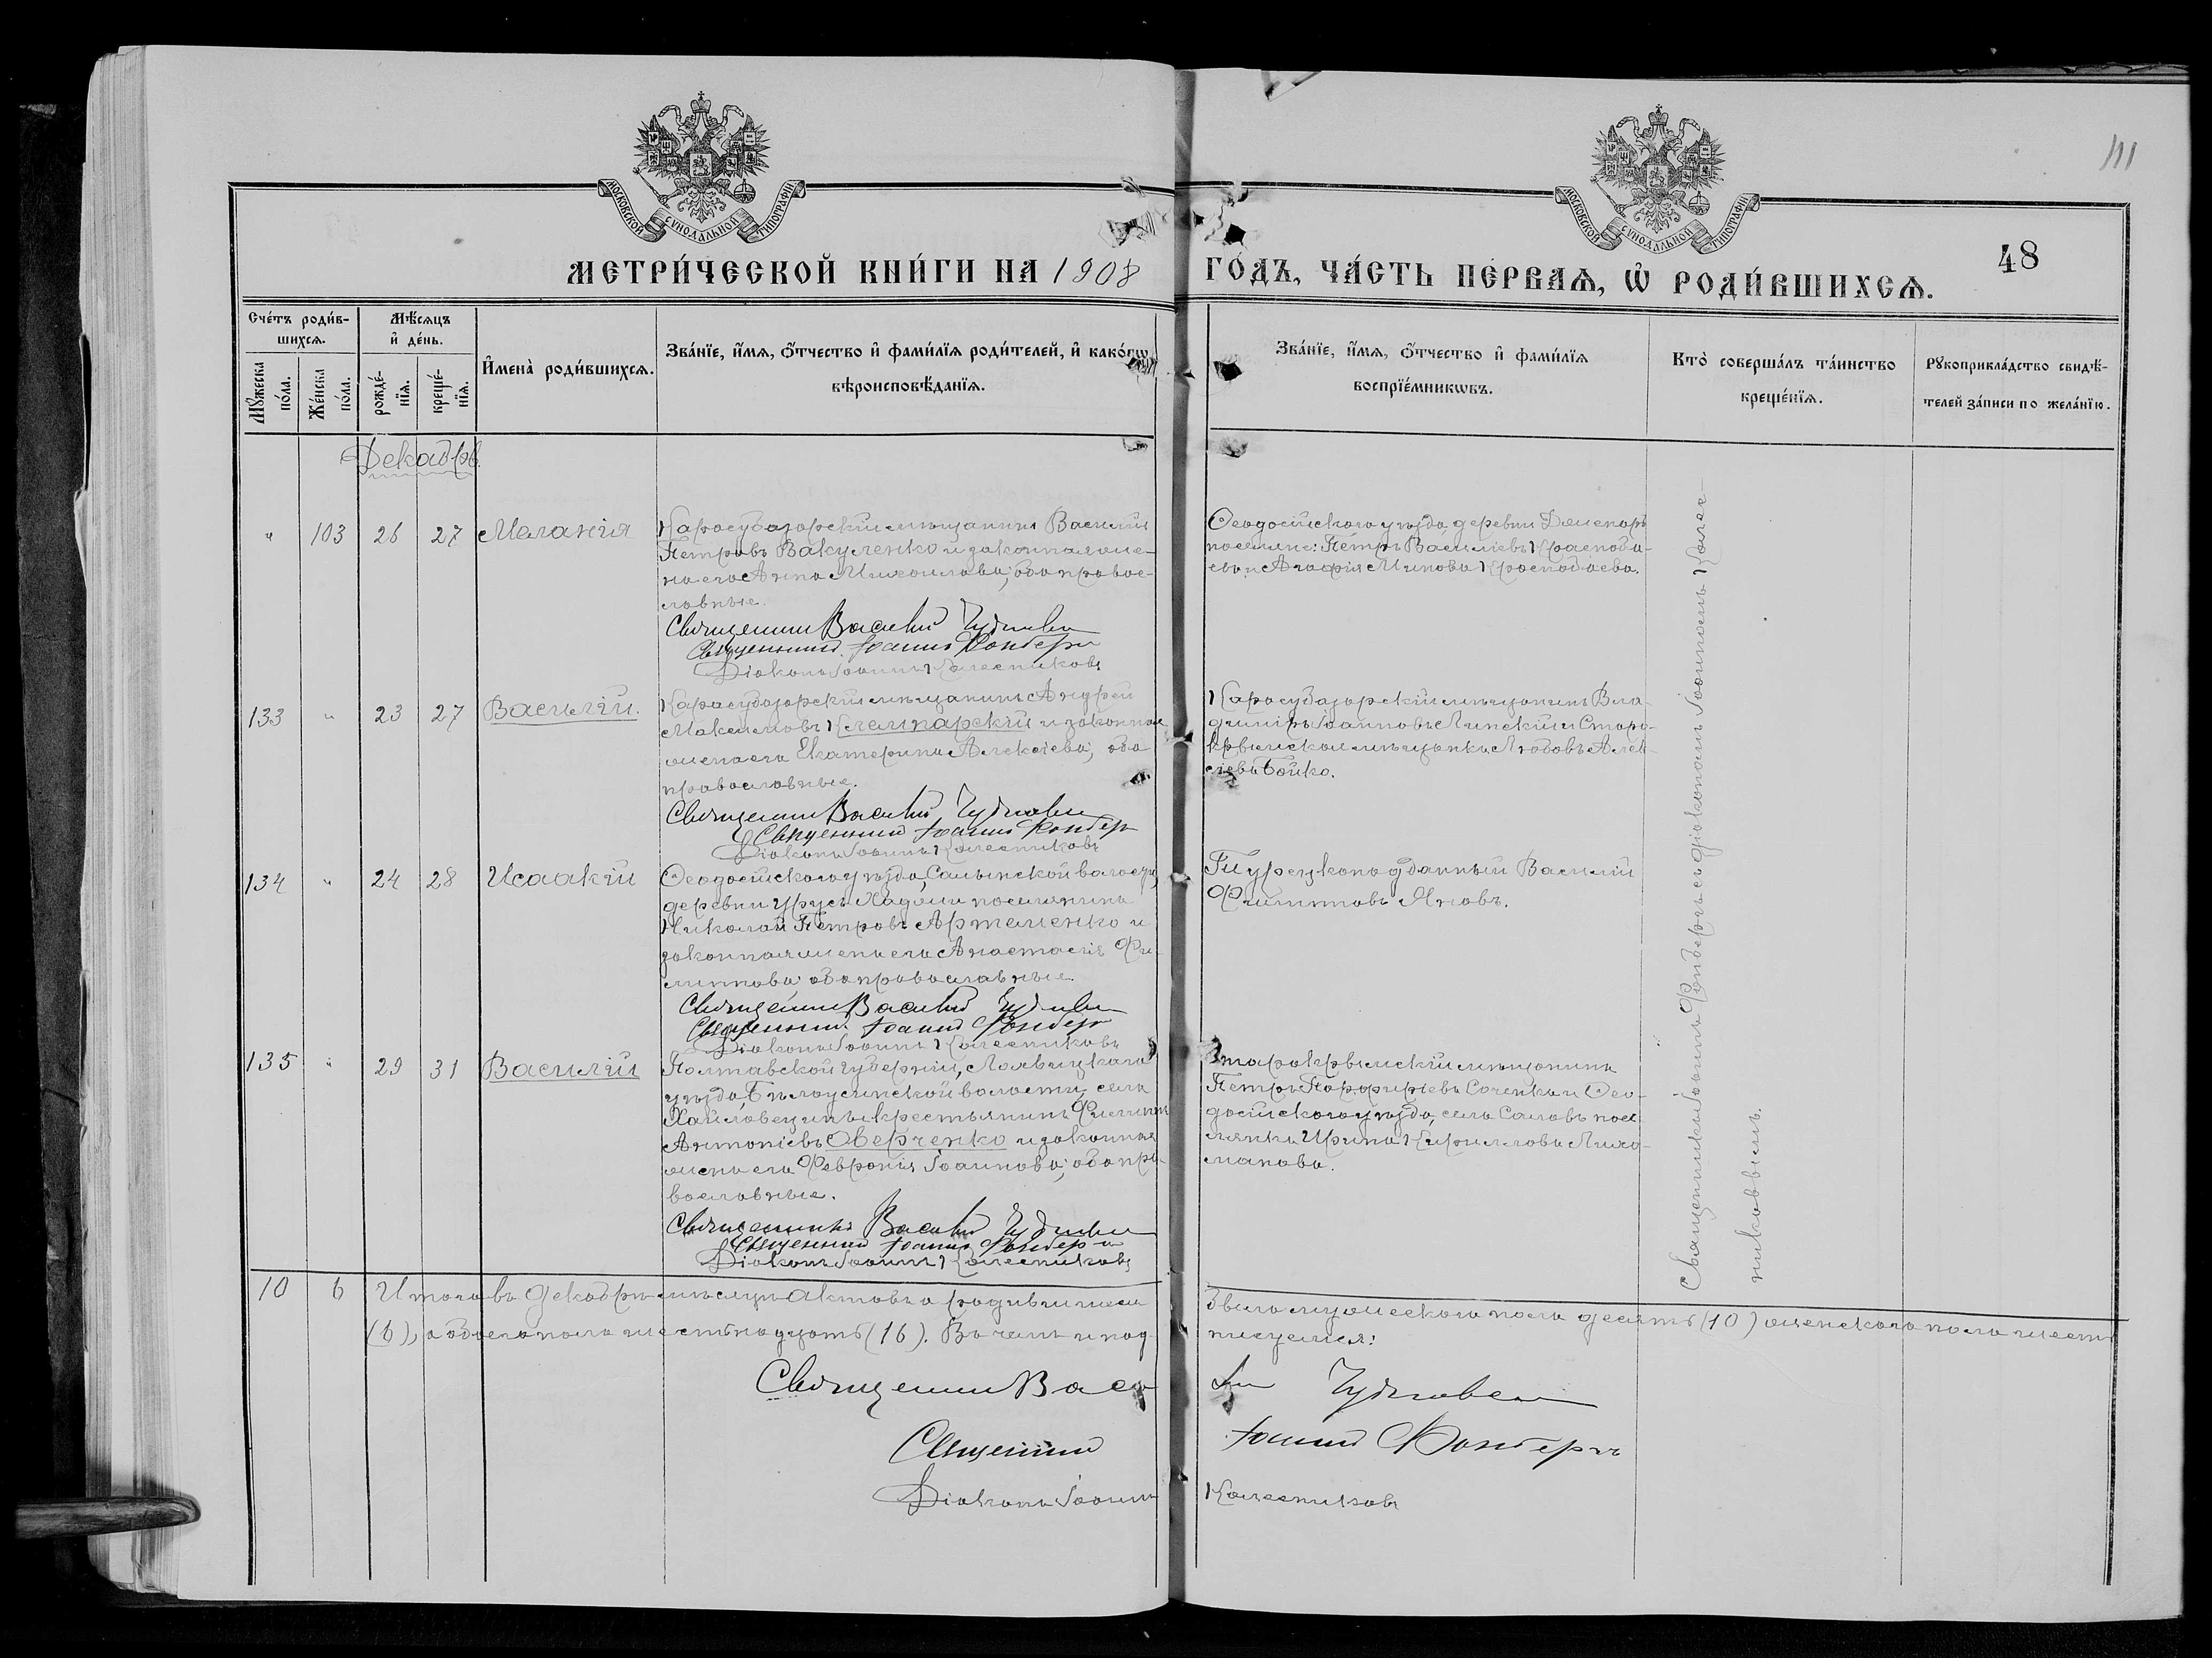 111
МОСКОВСКОЙ СѴНОДАЛЬНОЙ ТИПОГРАФІИ
МОСКОВСКОЙ СѴНОДАЛЬНОЙ ТИПОГРАФІИ
МЕТРИ́ЧЕСКОЙ КНИ́ГИ НА 1908
ГО́ДЪ, ЧА́СТЬ ПЕ́РВАѦ, Ѡ҆ РОДИ́ВШИХСѦ.
48
Сче́тъ роди́в-
шихсѧ.
Мꙋ́жеска
по́ла.
Же́нска
по́ла.
Мѣ́сѧцъ
и҆ де́нь.
рожде́-
нїѧ.
креще́-
нїѧ.
И҆мена̀ роди́вшихсѧ.
Зва́нїе, и҆́мѧ, ѻ҆́тчество и҆ фами́лїѧ роди́телей, и҆ како́гѡ
вѣроисповѣ́данїѧ.
Зва́нїе, и҆́мѧ, ѻ҆́тчество и҆ фами́лїѧ
воспрїе́мникѡвъ.
Кто̀ соверша́лъ та́инство
креще́нїѧ.
Рꙋкоприкла́дство свидѣ́-
телей за́писи по жела́нїю.
Декабрь.
" 103 26 27 Меланія
Карасубазарскій мѣщанинъ Василій
Петровъ Вакуленко и законная же-
на его Анна Михаилова; оба право-
славные.
Священникъ Василій Чудновскій
Священникъ Іоаннъ Фондеръ
Діаконъ Іоаннъ Колесниковъ
Ѳеодосійскаго уѣзда, деревни
поселяне: Петръ Василіевъ
и Агафія Минова
133 " 23 27 Василій.
Карасубазарскій мѣщанинъ Андрей
Максимовъ Клемпарскій и законная
жена его Екатерина Алексіева; оба
православные.
Священникъ Василій Чудновскій
Священникъ Іоаннъ Фондеръ
Діаконъ Іоаннъ Колесниковъ
Карасубазарскій мѣщанинъ Вла-
диміръ Іоанновъ Липскій и Старо-
крымская мѣщанка Любовь Алек-
сіева Бойко.
134 " 24 28 Исаакій
Ѳеодосійскаго уѣзда, Салынской волости,
деревни Урусъ Хаджи поселянинъ
Николай Петровъ Артеменко и
законная жена его Анастасія Фи-
липпова; оба православные.
Священникъ Василій Чудновскій
Священникъ Іоаннъ Фондеръ
Діаконъ Іоаннъ Колесниковъ
Турецкоподданный Василій
Филипповъ Яновъ.
135 " 29 31 Василій
Полтавской губерніи, Лохвицкаго
уѣзда, Бѣлоусинской волости, села
крестьянинъ Филиппъ
Антоніевъ Оверченко и законная
жена его Февронія Іоаннова; оба пра-
вославные.
Священникъ Василій Чудновскій
Священникъ Іоаннъ Фондеръ
Діаконъ Іоаннъ Колесниковъ
Старокрымскій мѣщанинъ
Петръ Порфиріевъ Соченко и Ѳео-
досійскаго уѣзда, села Саловъ посе-
лянка Ирина Кириллова Лихо-
манова.
Священникъ Іоаннъ Фондеръ съ діакономъ Іоанномъ Колес-
никовымъ.
10 6 Итого въ Декабрѣ мѣсяцѣ актовъ о родившихся
было мужескаго пола десять (10) женскаго пола шесть
(6), а обоего пола шестьнадцать (16). Въ чемъ и под-
писуемся:
Священникъ Василій Чудновскій
Священникъ Іоаннъ Фондеръ
Діаконъ Іоаннъ Колесниковъ